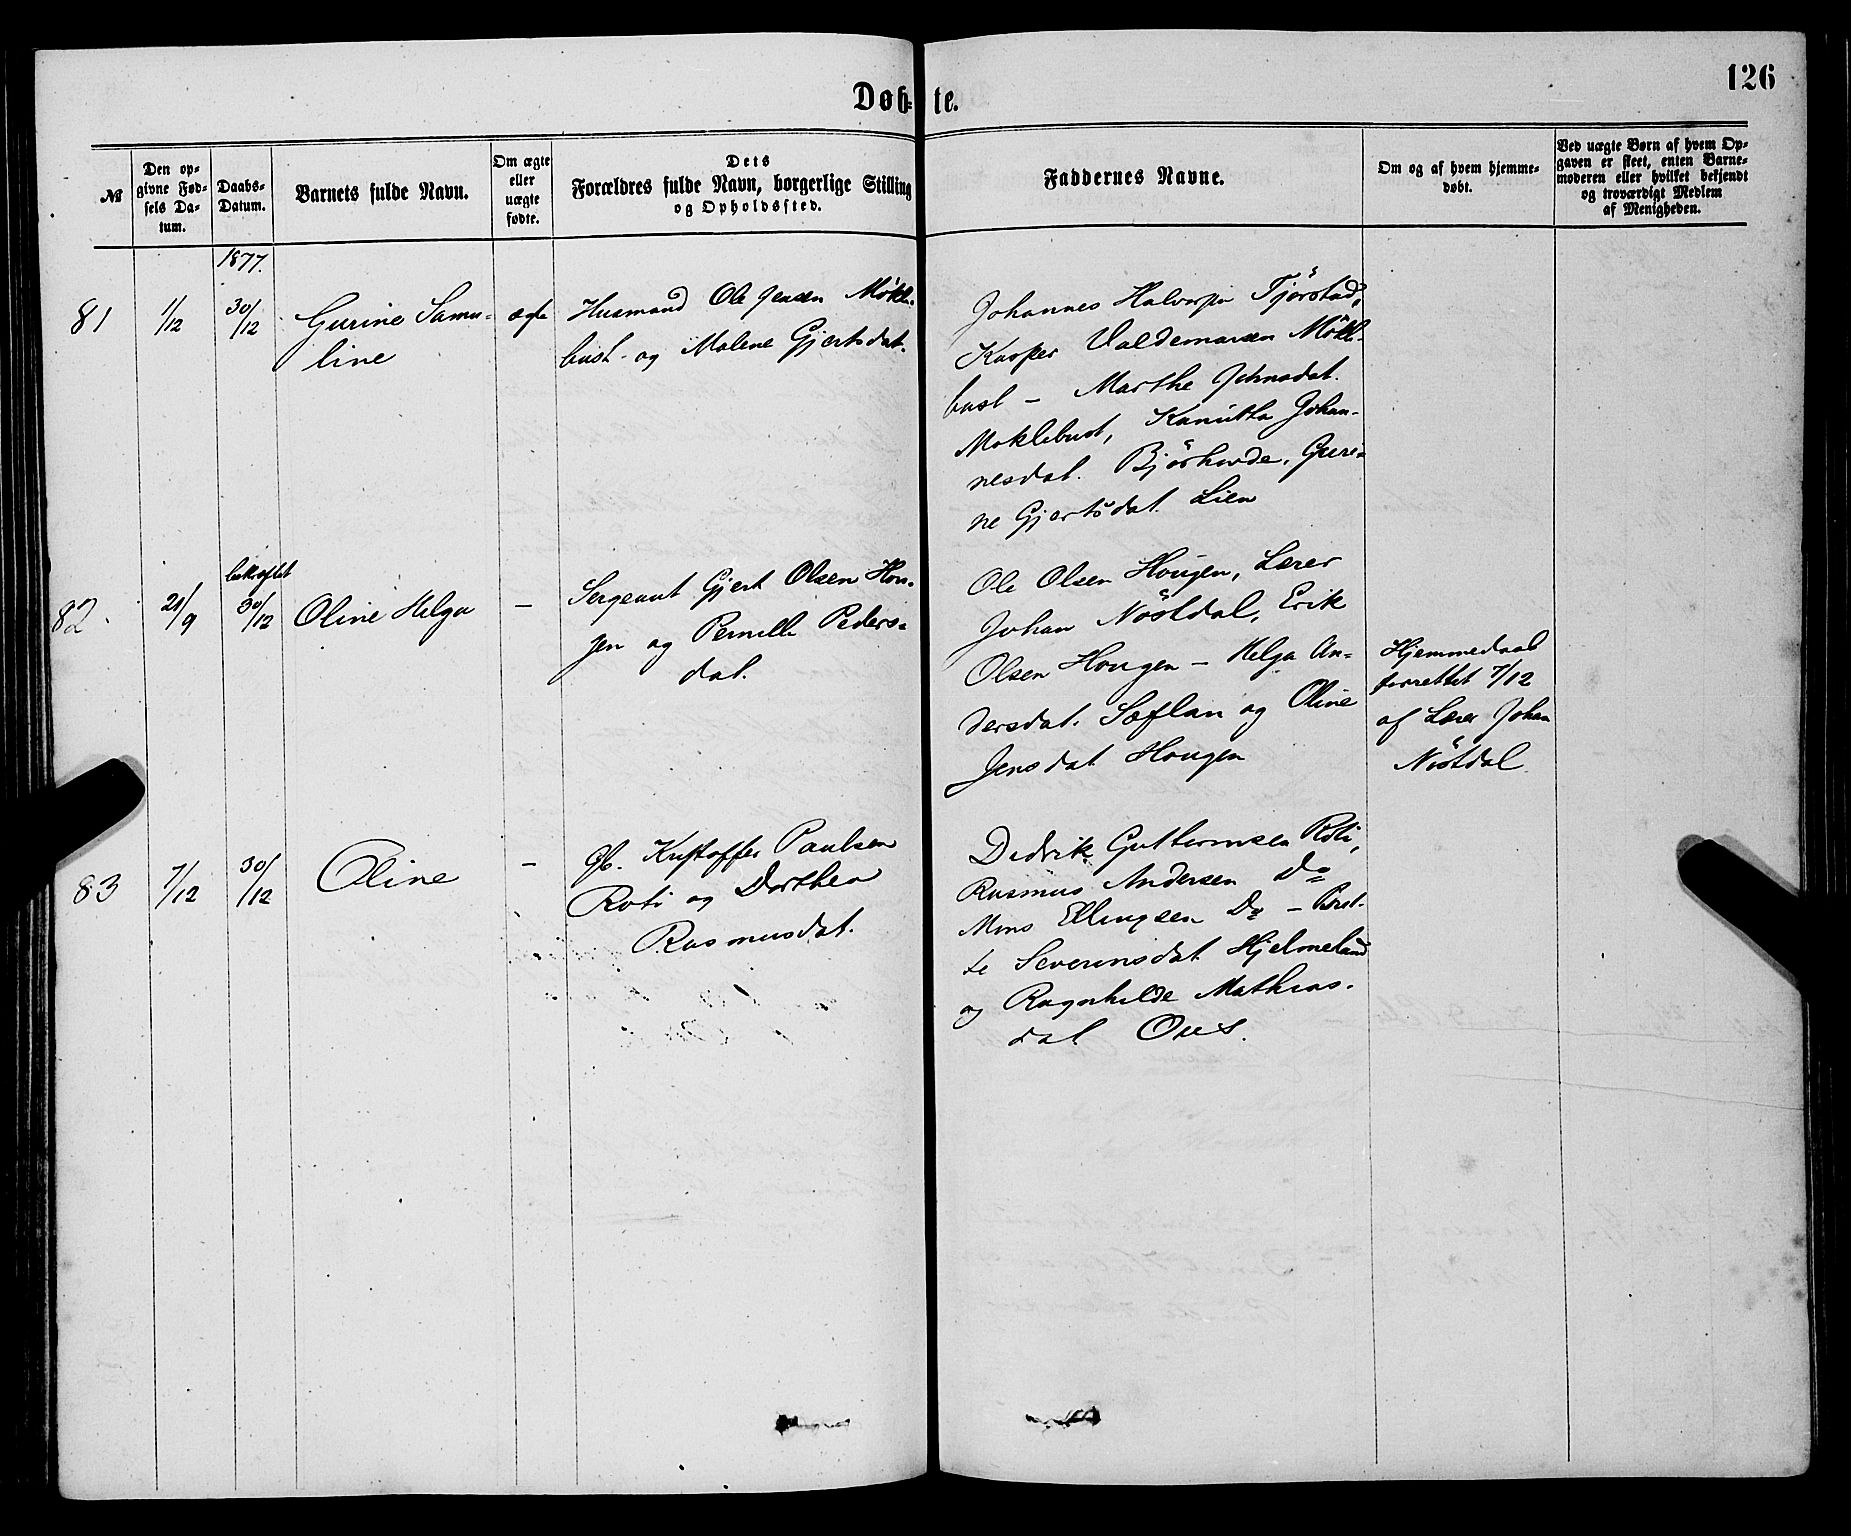 126
Døb- te.
№
Den op-
givne Fød-
sels Da-
tum.
Daabs-
Datum.
Barnets fulde Navn.
Om ægte
eller
uægte
fødte.
Dets
Forældres fulde Navn, borgerlige Stilling
og Opholdssted.
Faddernes Navne.
Om og af hvem hjemme-
døbt.
Ved uægte Børn af hvem Op-
gaven er skeet, enten Barne-
moderen eller hvilket bekjendt
og troværdigt Medlem
af Menigheden.
1877.
81
1/12
30/12
Gurine Samu-
line
ægte
Husmand Ole Jensen Møkle-
bust og Malene Gjertsdat.
Johannes Halvorsen Tjørstad,
Kasper Valdemarsen Møkle-
bust – Marthe Johnsdat.
Moklebust, Kanutta Johan-
nesdat. Guri-
ne Gjertsdat. Lien
82.
21/9
bekræftet
30/12
Oline Helga
–
Sergeant Gjert Olsen Hou-
gen og Pernille Peders-
dat.
Ole Olsen Hougen, Lærer
Johan Nøstdal, Erik
Olsen Hougen – Helga An-
dersdat. Sæflan og Oline
Jensdat Hougen
Hjemmedaab
forrettet 7/12
af Lærer Johan
Nøstdal.
83
7/12
30/12
Oline
–
Gb. Kristoffer Paulsen
Roti og Dorthea
Rasmusdat.
Didrik Guttormsen Roti,
Rasmus Andersen Do
Mons Ellingsen Do – Brit-
te Severinsdat Hjelmeland
og Ragnhilde Mathias-
dat Ous.